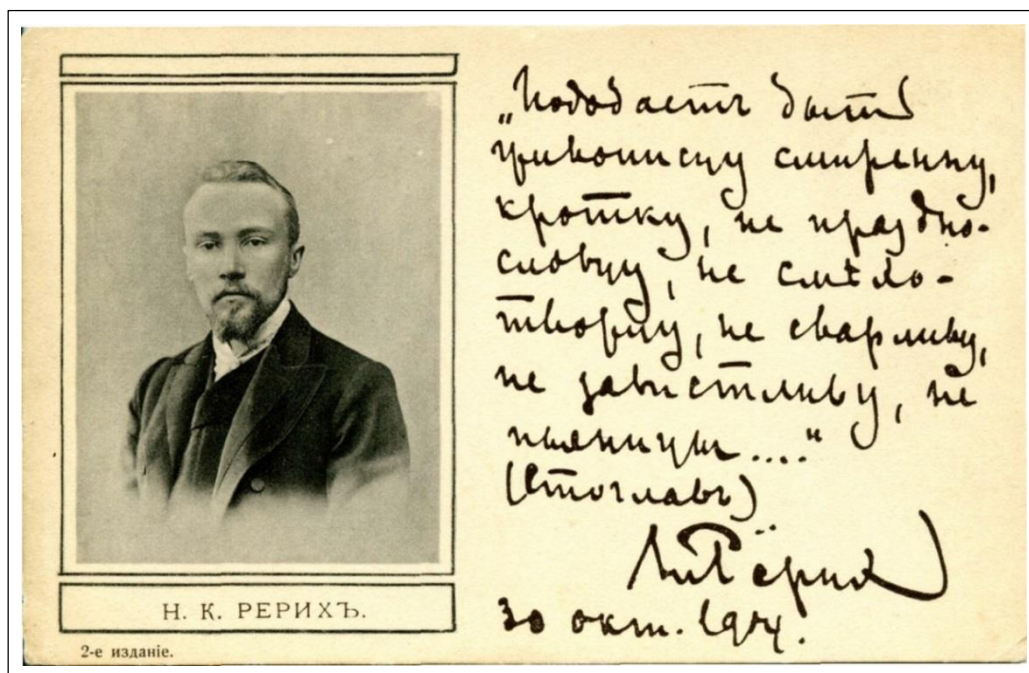 Н. К. РЕРИХЪ.
2-е изданіе.
„Подобаетъ быть
живописцу смиренну,
кротку, не праздно-
словцу, не смѣхо-
творцу, не сварливу,
не завистливу, не
пьяницы...."
(Стоглавъ)
Рёрих
30 окт. 1904.